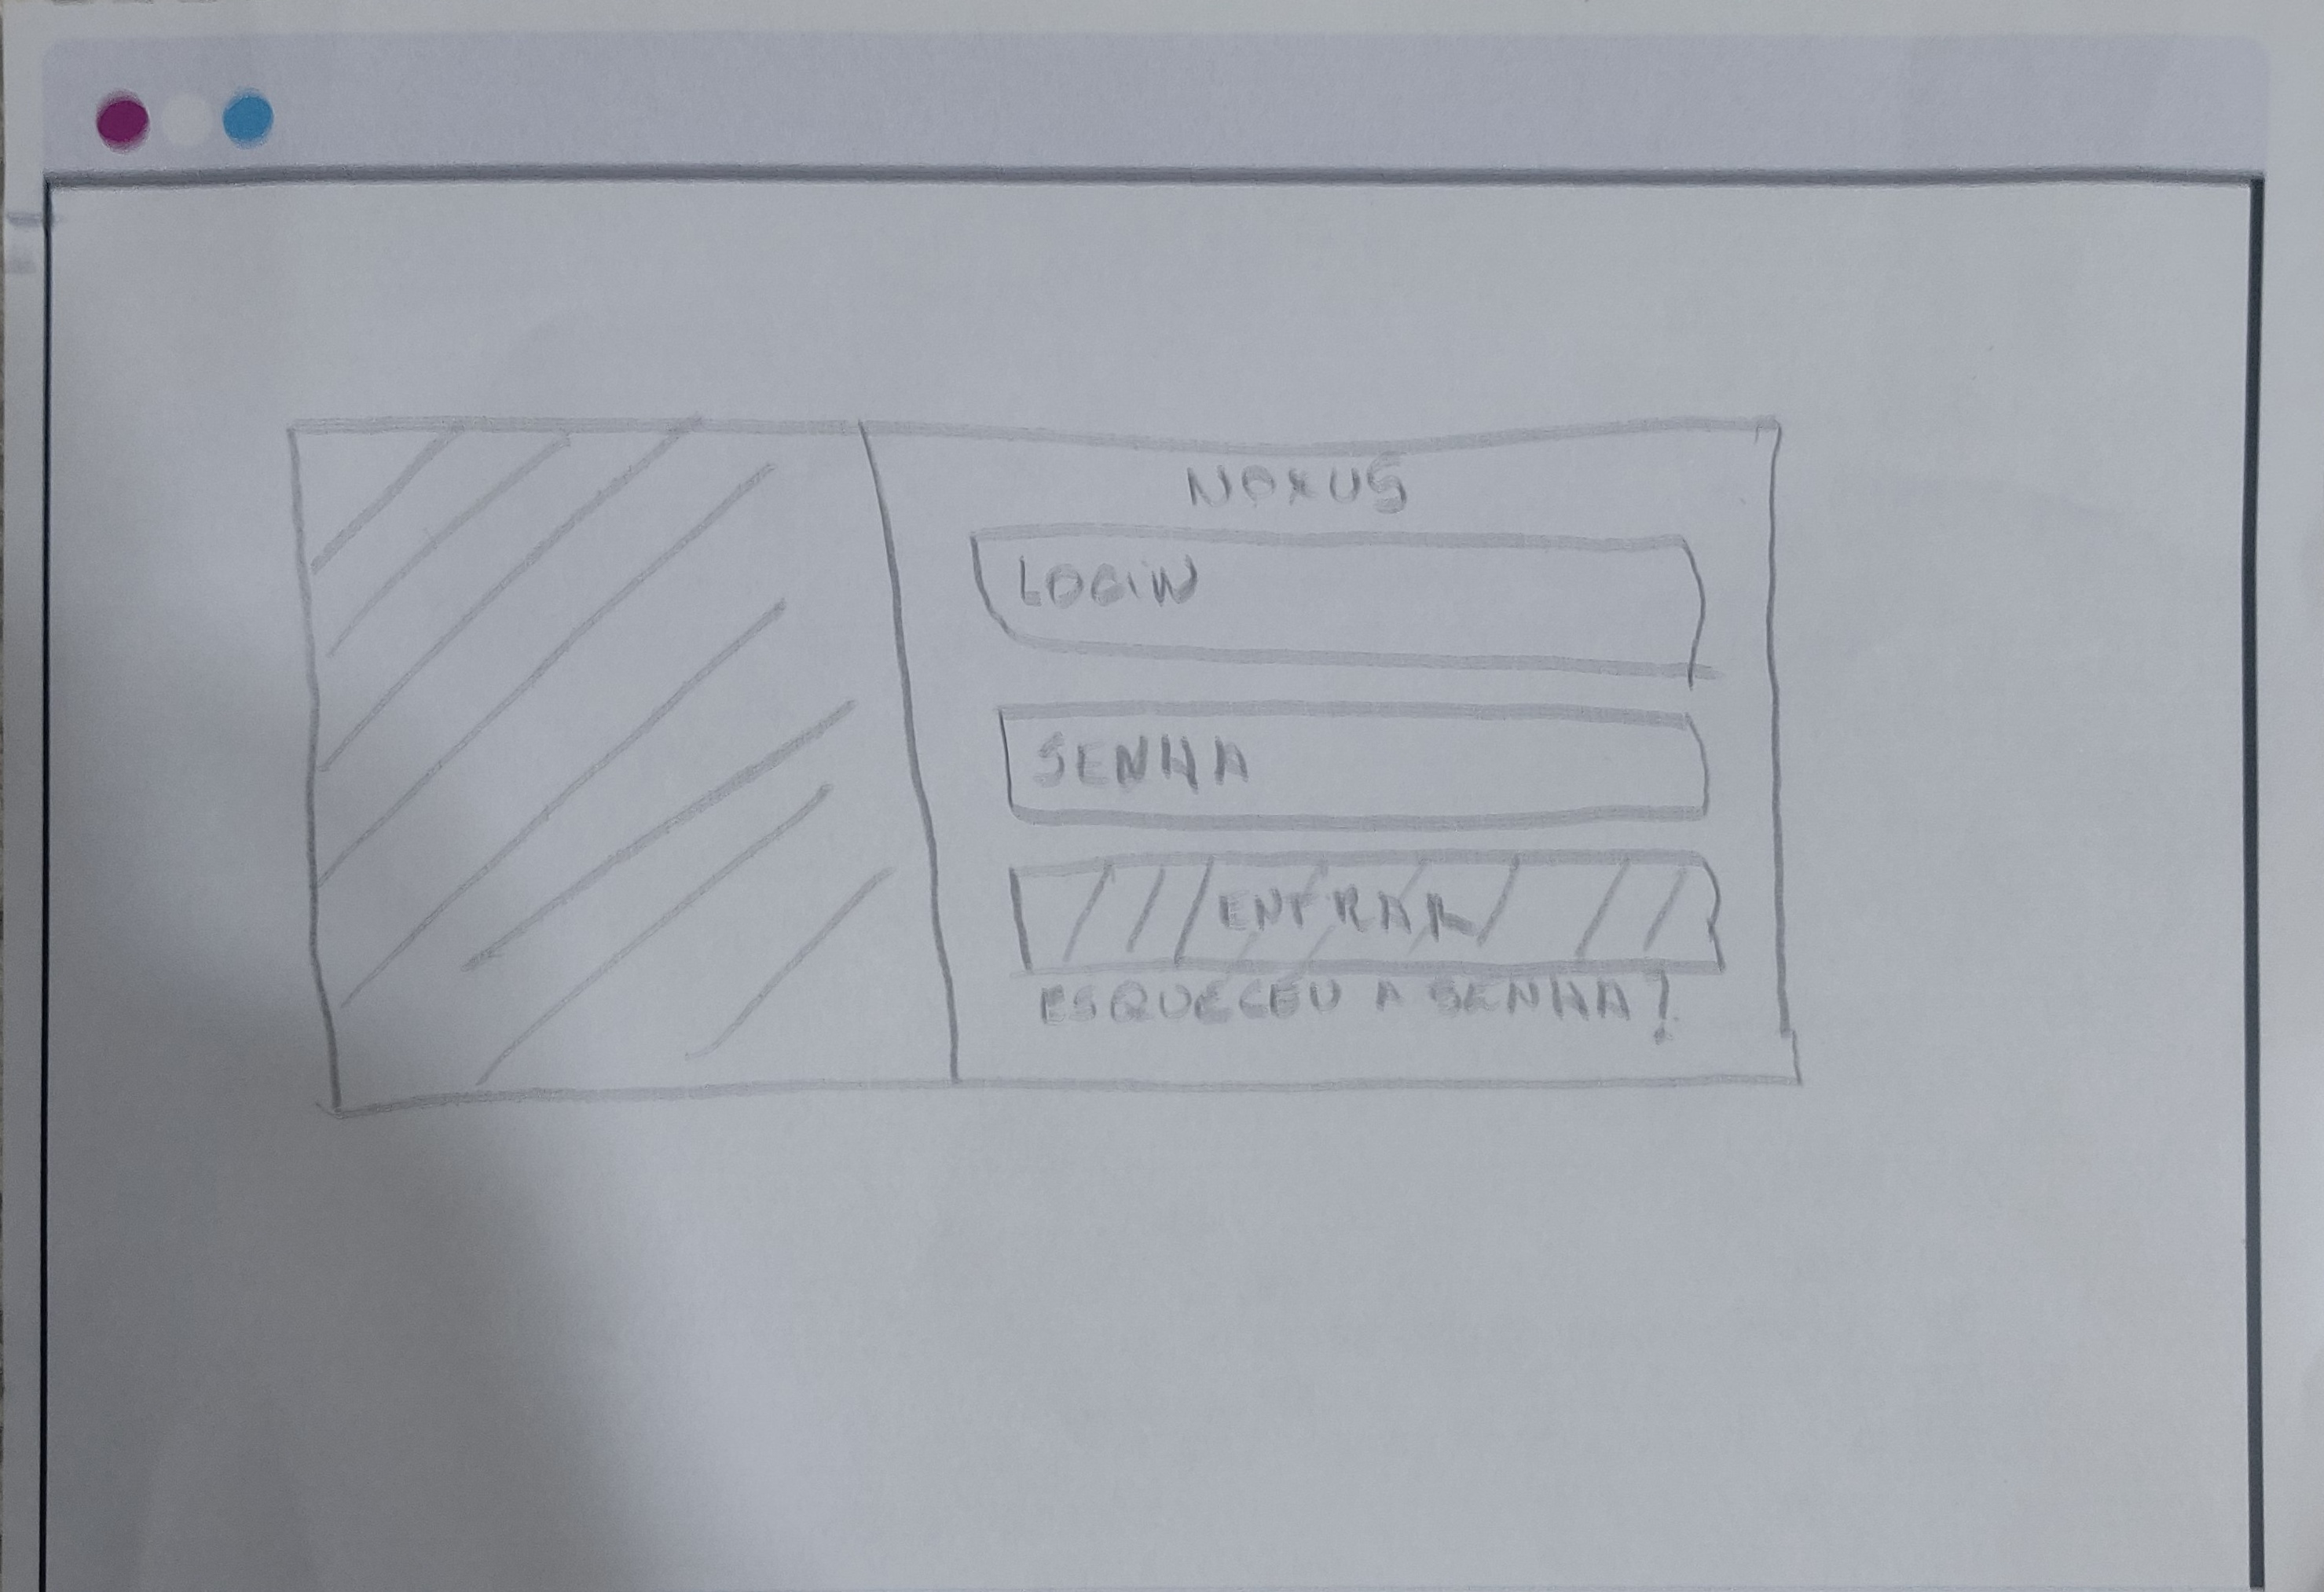 NOXUS
LOGIN
SENHA
ENTRAR
ESQUECEU A SENHA?